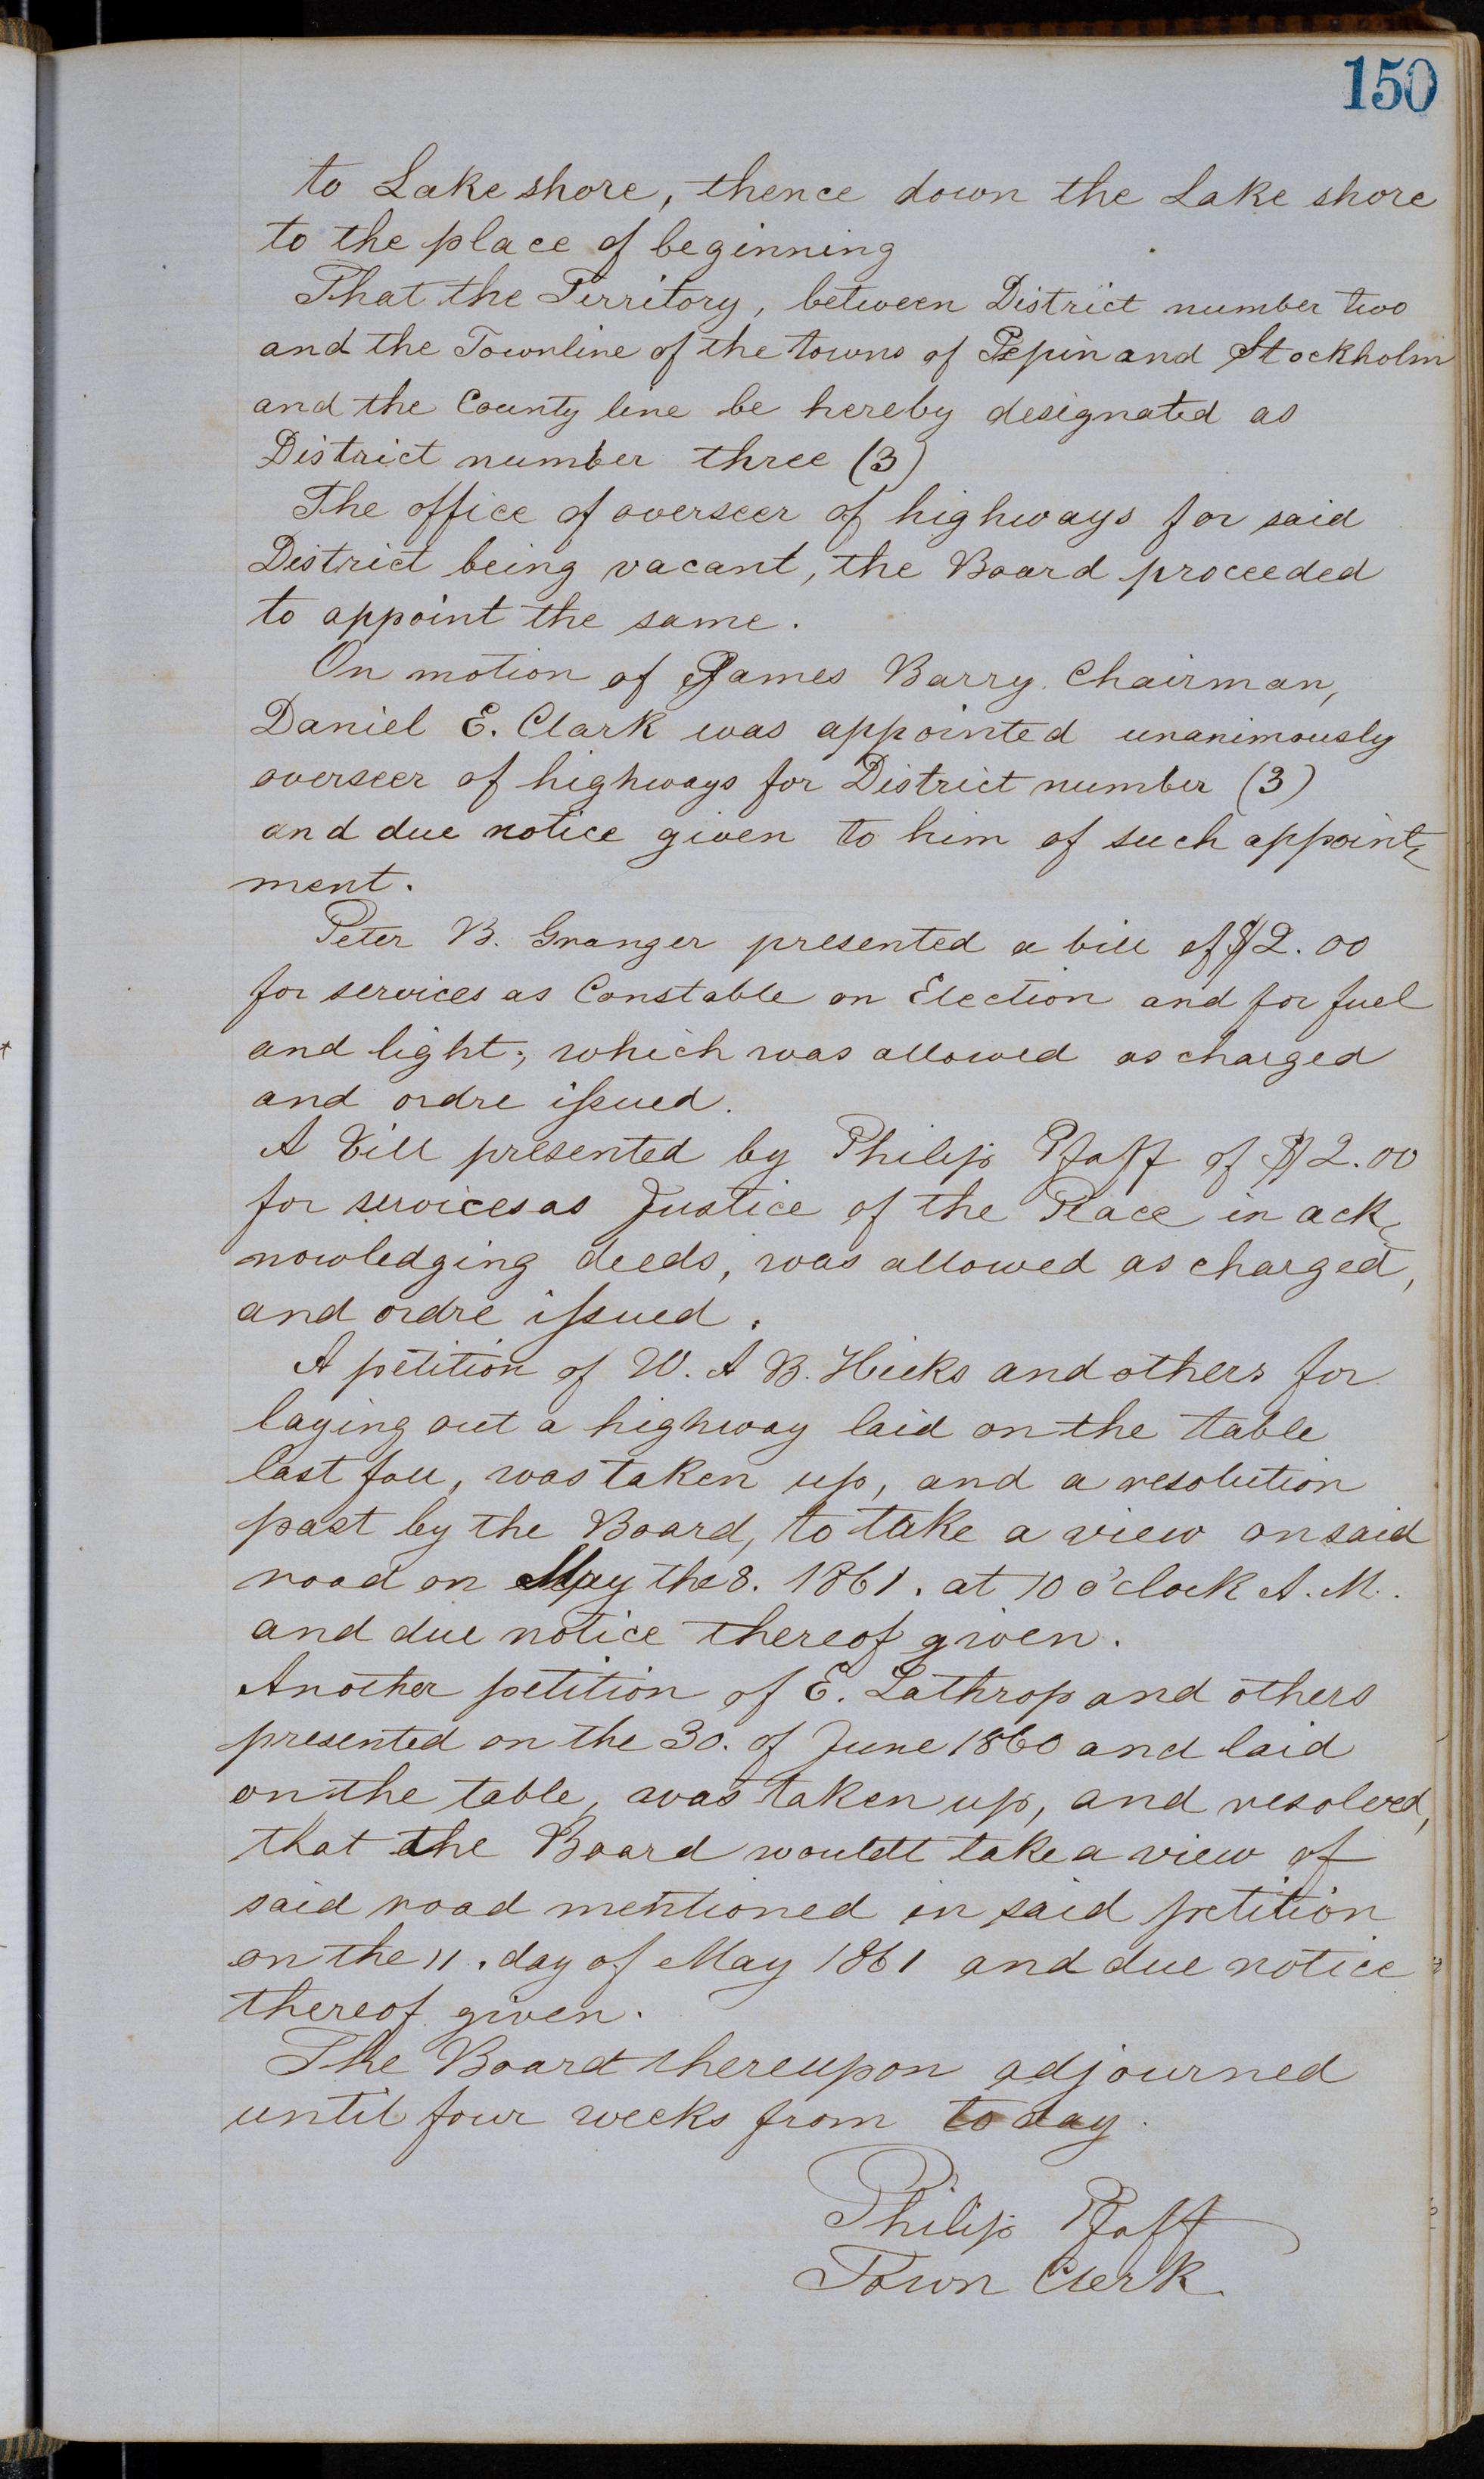 150
to Lake shore, thence down the Lake shore
to the place of beginning
That the Territory, between District number two
and the Townline of the towns of Pepin and Stockholm
and the County line be hereby designated as
District number three (3)
The office of overseer of highways for said
District being vacant, the Board proceeded
to appoint the same.
On motion of James Barry Chairman,
Daniel E. Clark was appointed unanimously
overseer of highways for District number (3)
and due notice given to him of such appoint-
ment.
Peter B. Granger presented a bill of $2.00
for services as Constable on Election and for fuel
and light; which was allowed as charged
and ordre issued.
A Bill presented by Philip Pfaff of $2.00
for services as Justice of the Peace in ack-
nowledging deeds, was allowed as charged,
and ordre issued.
A petition of W. A B. Hicks and others for
laying out a highway laid on the table
last fall, was taken up, and a resolution
past by the Board, to take a view on said
road on May the 8. 1861. at 10 o'clock A. M.
and due notice thereof given.
Another petition of E. Lathrop and others
presented on the 30. of June 1860 and laid
on the table, was taken up, and resolved,
that the Board would take a view of
said road mentioned in said petition
on the 11. day of May 1861 and due notice
thereof given.
The Board thereupon adjourned
until four weeks from today.
Philip Pfaff
Town Clerk.